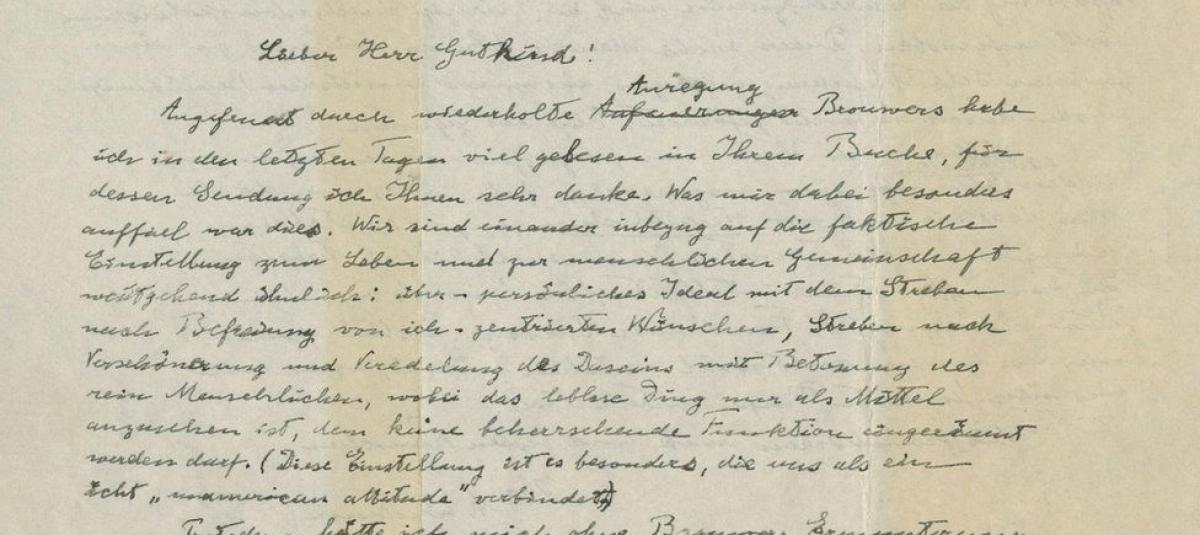 Lieber Herr Gutkind!
Anregung
Angefeuert durch wiederholte Anfeuerungen Brouwers habe
ich in den letzten Tagen viel gelesen in Ihrem Buche, für
dessen Sendung ich Ihnen sehr danke. Was mir dabei besonders
auffiel war dies. Wir sind einander inbezug auf die faktische
Einstellung zum Leben und zur menschlichen Gemeinschaft
weitgehend ähnlich: über-persönliches Ideal mit dem Streben
nach Befreiung von ich-zentrierten Wünschen, Streben nach
Verschönerung und Veredelung des Daseins mit Betonung des
rein Menschlichen, wobei das leblose Ding nur als Mittel
anzusehen ist, dem keine beherrschende Funktion eingeräumt
werden darf. (Diese Einstellung ist es besonders, die uns als ein
echt „unamerican attitude" verbindet.)
Trotzdem hätte ich mich ohne Brouwers Ermunterung